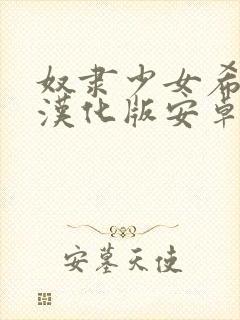 奴隶少女希
漢化版安卓
安墓天使